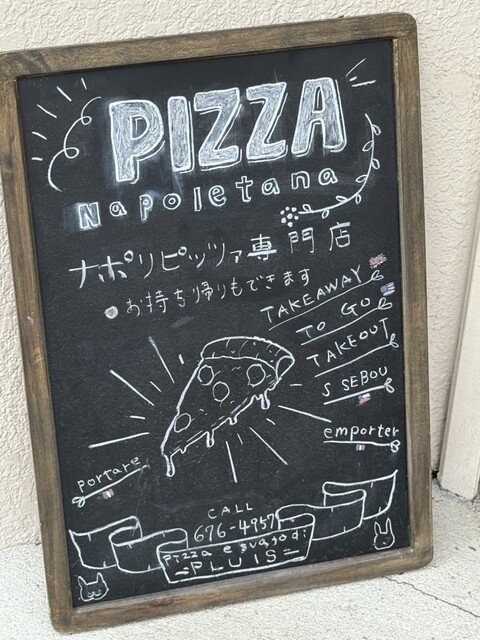 PIZZA
Napoletana
ナポリピッツァ専門店
お持ち帰りもできます
TAKEAWAY
TO GO
TAKEOUT
S SEBOU
emporter
portare
CALL
676-4957
pizza e svagodi
PLUIS